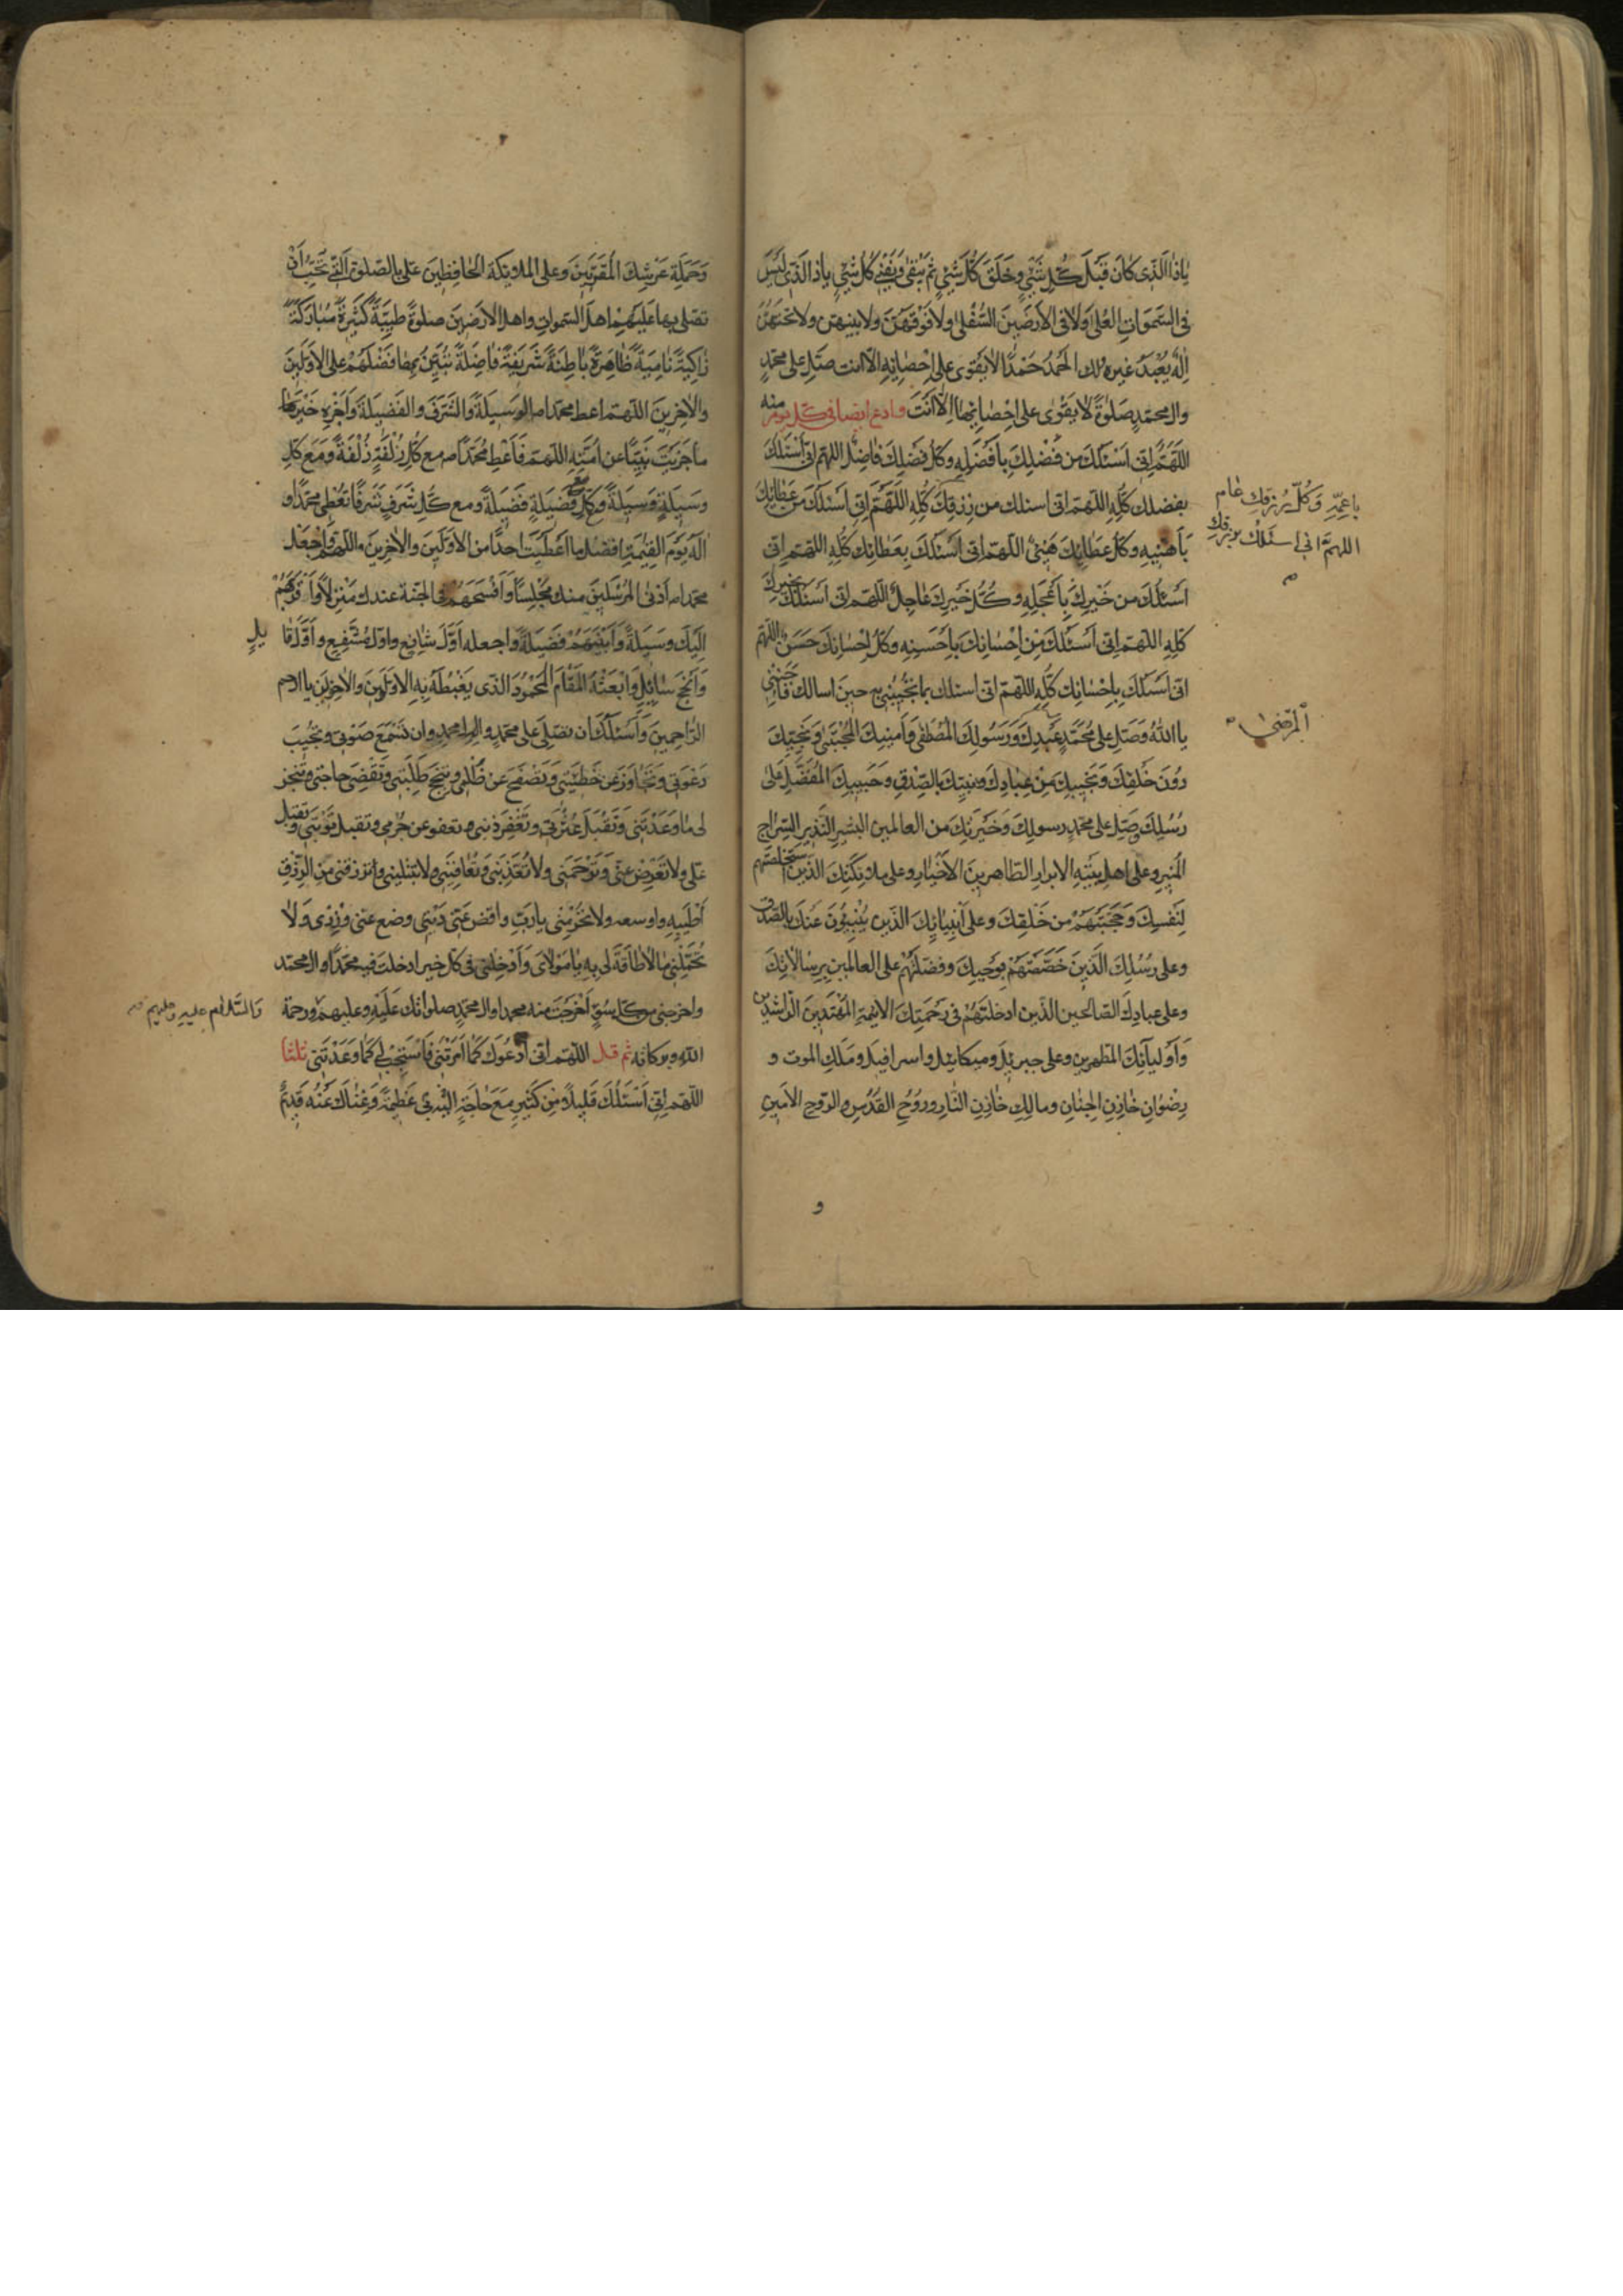 يا ذا الذى كان قبل كل شئ وخلق كل شئ ثم يبقى ويفنى كل شئ يا ذا الذى ليس
فى السموات العلى ولا فى الارضين السفلى ولا فوقهن ولا بينهن ولا تحتهن
اله يعبد غيره لك الحمد حمدا لا يقوى على احصائه الا انت صل على محمد
وال محمد صلوة لا يقوى على احصائها الا انت وادع ايضا فى كل يوم منه
اللهم انى اسئلك من فضلك بافضله وكل فضلك فاضل اللهم انى اسئلك
بفضلك كله اللهم انى اسئلك من رزقك كله اللهم انى اسئلك من عطائك
باعمه وكل رزقك عام
اللهم انى اسئلك برزقك
باهنئه وكل عطائك هنئ اللهم انى اسئلك بعطائك كله اللهم انى
اسئلك من خيرك باعجله وكل خيرك عاجل اللهم انى اسئلك بخيرك
كله اللهم انى اسئلك من احسانك باحسنه وكل احسانك حسن اللهم
انى اسئلك باحسانك كله اللهم انى اسئلك بما تجيبنى به حين اسالك فاجبنى
يا الله وصل على محمد عبدك ورسولك المصطفى وامينك المجتبى ونجيك
المرتضى
دون خلقك ونجيبك من عبادك ونبيك بالصدق وحبيبك المفضل على
رسلك وصل على محمد رسولك وخيرتك من العالمين البشير النذير السراج
المنير وعلى اهل بيته الابرار الطاهرين الاخيار وعلى ملائكتك الذين استخلصتهم
لنفسك وحجبتهم من خلقك وعلى انبيائك الذين ينبئون عنك بالصدق
وعلى رسلك الذين خصصتهم بوحيك وفضلتهم على العالمين برسالاتك
وعلى عبادك الصالحين الذين ادخلتهم فى رحمتك الائمة المهتدين الراشدين
واوليائك المطهرين وعلى جبرئيل وميكائيل واسرافيل وملك الموت و
رضوان خازن الجنان ومالك خازن النار وروح القدس والروح الامين
و
وحملة عرشك المقربين وعلى الملائكة الحافظين على بالصلوة التى تحب ان
تصلى بها عليهم اهل السموات واهل الارضين صلوة طيبة كثيرة مباركة
زاكية نامية ظاهرة باطنة شريفة فاضلة تبين بها فضلهم على الاولين
والاخرين اللهم اعط محمدا الوسيلة والشرف والفضيلة واجزه خير ما
ما جزيت نبيا عن امته اللهم فاعط محمدا مع كل زلفة زلفة ومع كل
وسيلة وسيلة ومع كل فضيلة فضيلة ومع كل شرف شرفا تعطى محمدا و
اله يوم القيمة افضل ما اعطيت احدا من الاولين والاخرين اللهم واجعل
محمدا ادنى المرسلين منك مجلسا وافسحهم فى الجنة عندك منزلا واقربهم
اليك وسيلة وابينهم فضيلة واجعله اول شافع واول مشفع واول قا
يل
وانجح سائل وابعثه المقام المحمود الذى يغبطه به الاولون والاخرين يا ارحم
الراحمين واسئلك ان تصلى على محمد وال محمد وان تسمع صوتى وتجيب
دعوتى وتجاوز عن خطيئتى وتصفح عن ظلمى وتنجح طلبتى وتقضى حاجتى وتنجز
لى ما وعدتنى وتقبل عثرتى وتغفر ذنبى وتعفو عن جرمى وتقبل توبتى وتقبل
على ولا تعرض عنى وترحمنى ولا تعذبنى وتعافينى ولا تبتلينى وترزقنى من الرزق
اطيبه واوسعه ولا تحرمنى يا رب واقض عنى دينى وضع عنى وزرى ولا
تحملنى ما لا طاقة لى به يا مولاى وادخلنى فى كل خير ادخلت فيه محمدا وال محمد
واخرجنى من كل سوء اخرجت منه محمدا وال محمد صلواتك عليه وعليهم ورحمة
والسلام عليه وعليهم
الله وبركاته ثم قل اللهم انى ادعوك كما امرتنى فاستجب لى كما وعدتنى ثلثا
اللهم انى اسئلك قليلا من كثير مع حاجة بى اليه عظيمة وغناك عنه قديم